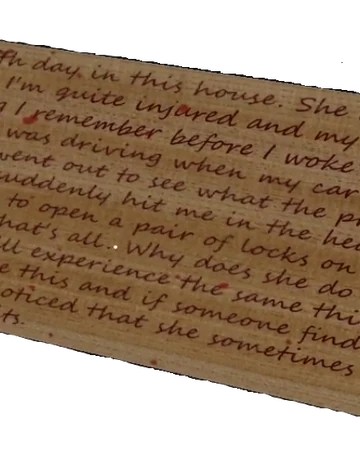 th day in this house. She
I'm quite injured and my
I remember before I woke
was driving when my car
went out to see what the pr
suddenly hit me in the hea
to open a pair of locks on
that's all.. Why does she do
ll experience the same thi
e this and if someone find
oticed that she sometimes
ts.